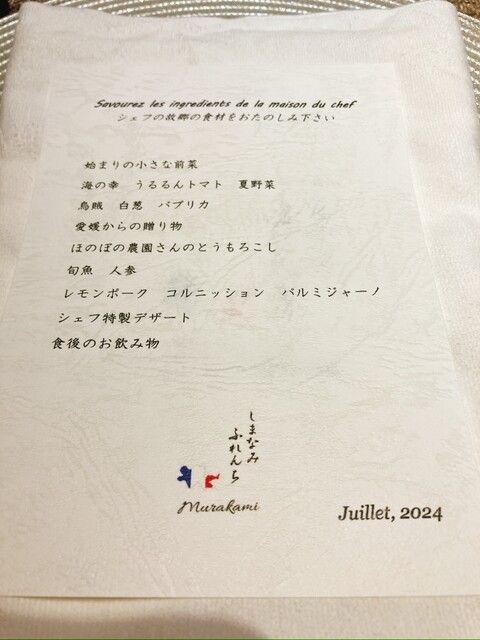 Savourez les ingredients de la maison du chef
シェフの故郷の食材をおたのしみ下さい
始まりの小さな前菜
海の幸　うるるんトマト　夏野菜
烏賊　白葱　パプリカ
愛媛からの贈り物
ほのぼの農園さんのとうもろこし
旬魚　人参
レモンポーク　コルニッション　パルミジャーノ
シェフ特製デザート
食後のお飲み物
しまなみ
ふれんち
Murakami
Juillet, 2024